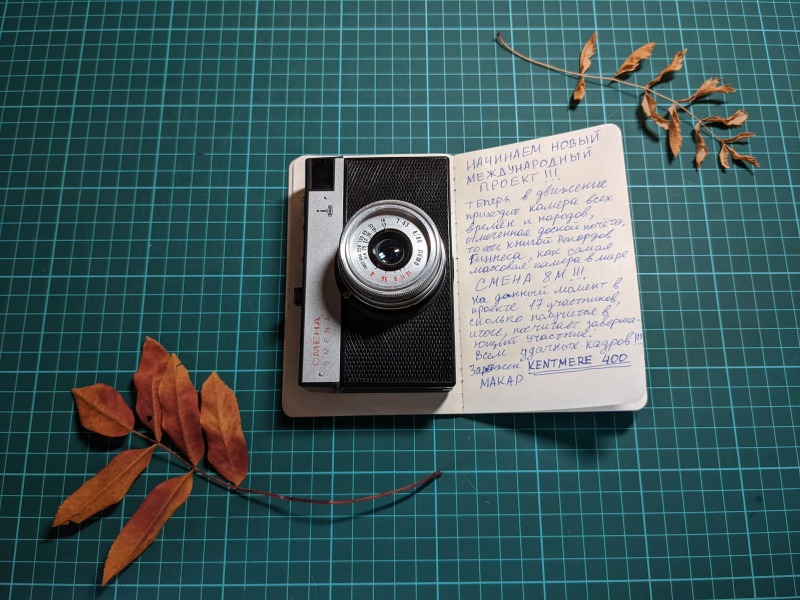 НАЧИНАЕМ НОВЫЙ
МЕЖДУНАРОДНЫЙ
ПРОЕКТ!!!
Теперь в движение
приходит камера всех
времён и народов,
отмеченная доской почёта,
то есть книгой рекордов
Гиннеса, как самая
массовая камера в мире
СМЕНА 8М!!!
На данный момент в
проекте 17 участников,
сколько получится в
итоге, посчитает заверша-
ющий участник.
Всем удачных кадров!!!
Заряжен KENTMERE 400
МАКАР
СМЕНА
SMENA